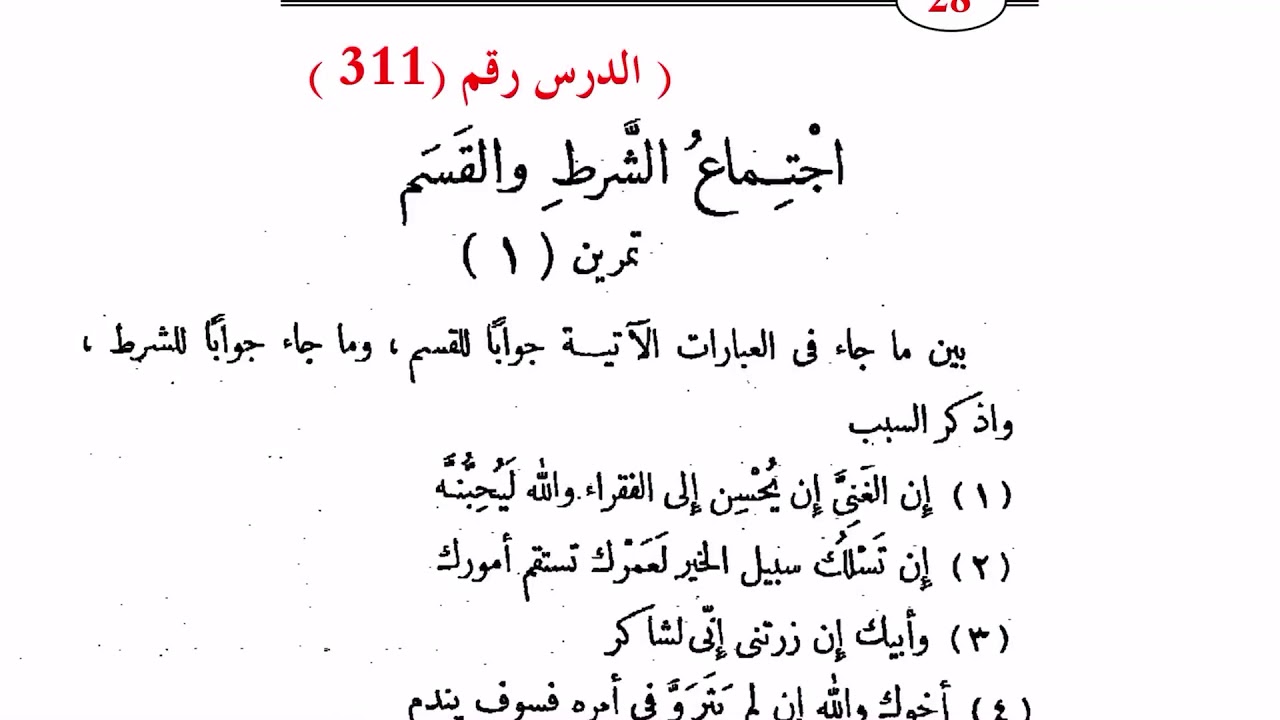 28
( الدرس رقم (311 )
اجْتِـماعُ الشَّرطِ والقَسَم
تمرين ( ١ )
بين ما جاء فى العبارات الآتيـة جوابًا للقسم ، وما جاء جوابًا للشرط ،
واذكر السبب
(١) إِن الغَنِىَّ إِن يُحْسِن إِلى الفقراء والله لَيُحِبُّنَّه
(٢) إِن تَسْلُكْ سبيل الخير لَعَمْرك تستقم أمورك
(٣) وأبيك إِن زرتنى إِنّى لشاكر
(٤) أخوك والله إن لم يَتَرَوَّ فى أمره فسوف يندم